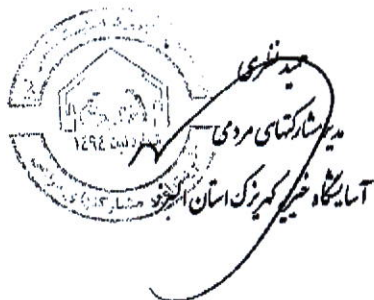 حمید نظری
مدیر مشارکتهای مردمی
آسایشگاه خیریه کهریزک استان البرز
ثبت ۱۴۹۴